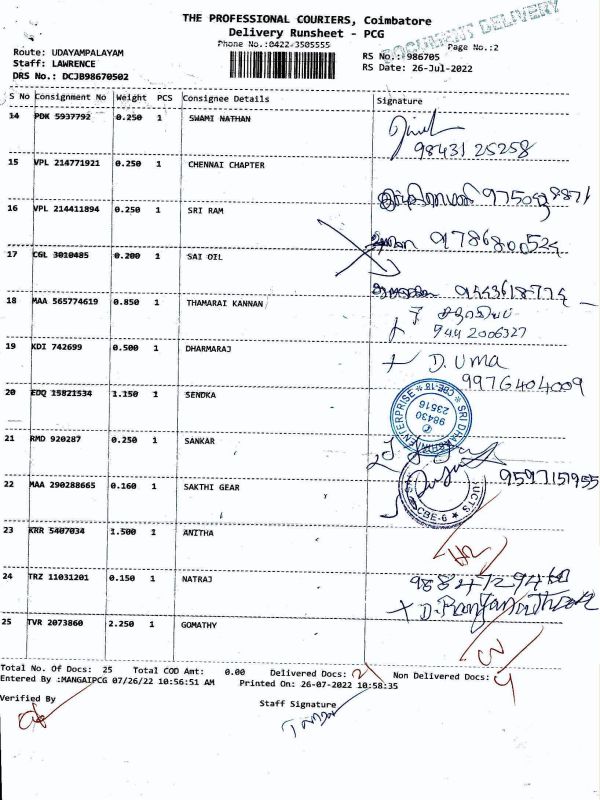 THE PROFESSIONAL COURIERS, Coimbatore
Delivery Runsheet - PCG
DOCUMENT DELIVERY
Phone No.:0422-3505555
Page No.:2
Route: UDAYAMPALAYAM
RS No.: 986705
Staff: LAWRENCE
RS Date: 26-Jul-2022
DRS No.: DCJB98670502
S No Consignment No Weight PCS Consignee Details Signature
14 PDK 5937792 0.250 1 SWAMI NATHAN
98431 25258
15 VPL 214771921 0.250 1 CHENNAI CHAPTER
16 VPL 214411894 0.250 1 SRI RAM
17 CGL 3010485 0.200 1 SAI OIL
18 MAA 565774619 0.850 1 THAMARAI KANNAN
944 2006327
19 KDI 742699 0.500 1 DHARMARAJ
D. Uma
9976404009
20 EDQ 15821534 1.150 1 SENDKA
ENTERPRISE * CBE-18 * SRI
98430
23516
21 RMD 920287 0.250 1 SANKAR
22 MAA 290288665 0.160 1 SAKTHI GEAR
9597151955
CBE-6 *
23 KRR 5407034 1.500 1 ANITHA
24 TRZ 11031201 0.150 1 NATRAJ
25 TVR 2073860 2.250 1 GOMATHY
Total No. Of Docs: 25 Total COD Amt: 0.00 Delivered Docs: 21 Non Delivered Docs: 4
Entered By :MANGAIPCG 07/26/22 10:56:51 AM Printed On: 26-07-2022 10:58:35
Verified By
Staff Signature